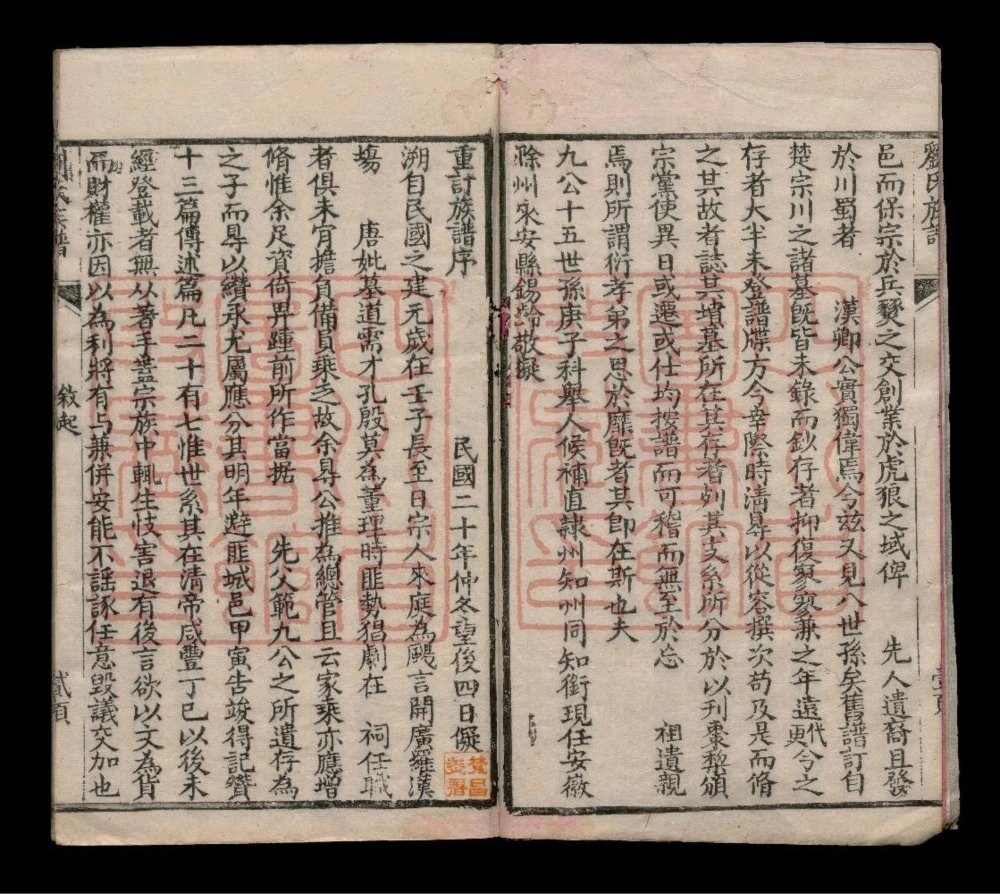 劉氏族譜
壹頁
邑而保宗於兵燹之交創業於虎狼之域俾 先人遺裔且發
於川蜀者 漢卿公實獨偉焉今兹又見八世孫矣舊譜訂自
楚宗川之諸墓旣皆未錄而鈔存者抑復寥寥兼之年遠代更今之
存者大半未登譜牒方今幸際時清㝵以從容撰次苟及是而脩
之其故者誌其墳墓所在其存者列其支系所分於以刊棗棃頒
宗黨使異日或遷或仕均按譜而可稽而無至於忘 祖遺親
焉則所謂衍孝弟之思於靡旣者其卽在斯也夫
九公十五世孫庚子科舉人候補直隷州知州同知銜現任安徽
滁州來安縣錫 敬擬
重訂族譜序 民國二十年仲冬望後四日儗
溯自民國之建元歲在壬子長至日宗人來庭為颺言開廣羅漢
塲 唐妣墓道需才孔殷莫為董理時匪勢猖劇在 祠任職
者俱未肎擔負備員乘之故余㝵公推為總管且云家乘亦應增
脩惟余足資倚畀踵前所作當据 先父範九公之所遺存為
之子而㝵以纘承尤屬應分其明年避匪城邑甲寅告竣得記贊
十三篇傳述篇凡二十有七惟世系其在清帝咸豐丁巳以後未
經登載者無从著手葢宗族中輒生忮害退有後言欲以文為貨
而財權亦因以為利將有与兼併安能不謡諑任意毀議交加也
劉氏族譜
敘起
貳頁